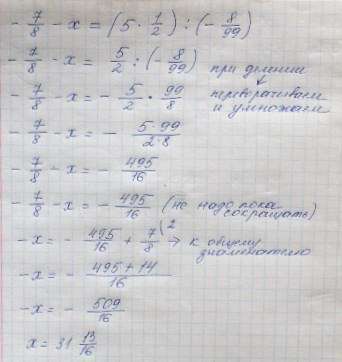 - 7/8 - x = (5 · 1/2) : (- 8/99)
- 7/8 - x = 5/2 : (- 8/99) при делении
- 7/8 - x = - 5/2 · 99/8 переворачиваем и умножаем
- 7/8 - x = - 5·99/2·8
- 7/8 - x = - 495/16
- 7/8 - x = - 495/16 (не надо пока сокращать)
-x = - 495/16 + 7/8 (2 → к общему знаменателю
-x = - 495+14/16
-x = - 509/16
x = 31 13/16